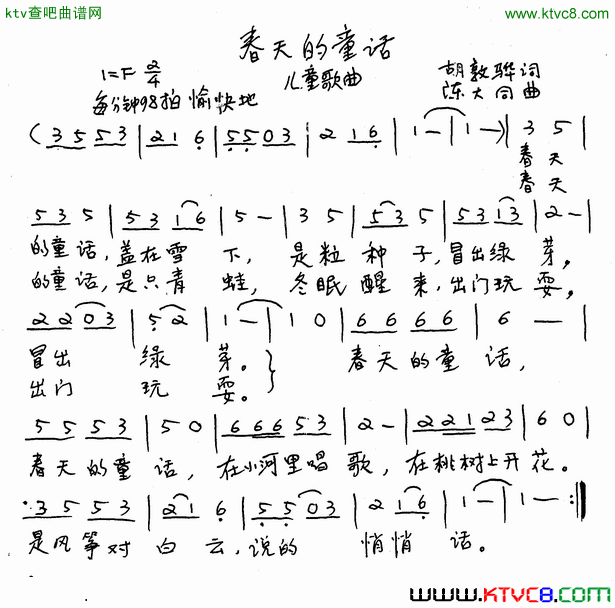 ktv查吧曲谱网
www.ktvc8.com
春天的童话
1=F 2/4
儿童歌曲
胡敦骅词
每分钟98拍 愉快地
陈大同曲
(3 5 5 3 | 2 1 6 | 5 5 0 3 | 2 1 6 | 1 — | 1 —) | 3 5 |
春天
春天
5 3 5 | 5 3 1 6 | 5 — | 3 5 | 5 3 5 | 5 3 1 3 | 2 — |
的童话,盖在雪 下, 是粒 种 子,冒出绿 芽,
的童话,是只青 蛙, 冬眠 醒 来,出门玩 耍,
2 2 0 3 | 5 2 | 1 — | 1 0 | 6 6 6 6 | 6 — |
冒出 绿 芽。} 春天的童 话,
出门 玩 耍。
5 5 5 3 | 5 0 | 6 6 6 5 3 | 2 — | 2 2 1 2 3 | 6 0 |
春天的童 话, 在小河里唱 歌, 在桃树上开 花。
3 5 5 3 | 2 1 6 | 5 5 0 3 | 2 1 6 | 1 — | 1 — :||
是风筝对 白 云,说的 悄悄 话。
www.KTVC8.com